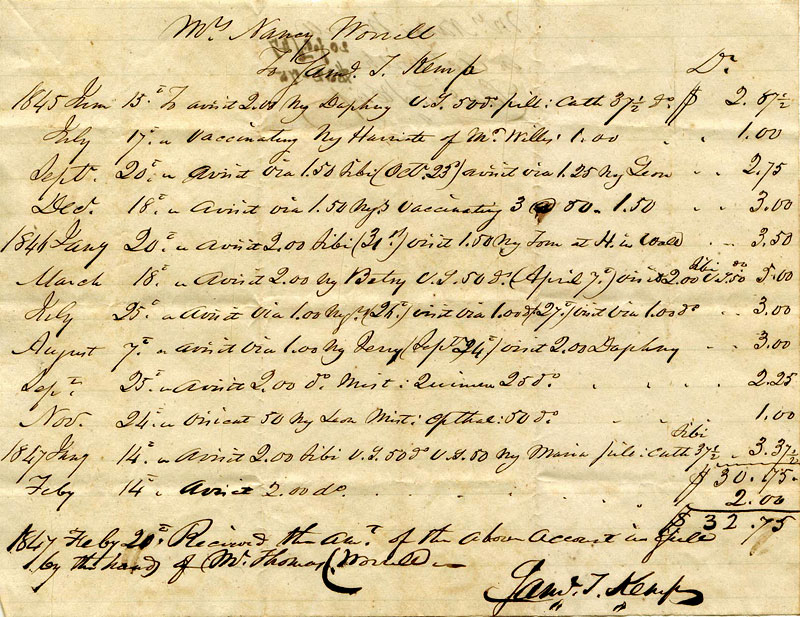 Mrs Nancy Worrell
To Saml. T. Kemp Dr.
1845 June 15th To a visit 2.00 Ng Daphny V.S. 50 do. pill: Cath 37½ do. $ 2.87½
July 17th " Vaccinating Ng Harriete of Mr. Willis 1.00 " " 1.00
Septr. 20th " a visit via 1.50 sibi (Octr. 23d) a visit via 1.25 Ng Leon " " 2.75
Decr. 18th " a visit via 1.50 Ngs Vaccinating 3 @ 50 " 1.50 " " 3.00
1846 Jany 20th " a visit 2.00 sibi (31st) visit 1.50 Ng Tom at H. in Wald " " 3.50
March 18th " a visit 2.00 Ng Betsy V.S. 50 do. (April 7th) visit 2.00 sibi V.S. 50 do 5.00
July 25th " a visit via 1.00 Ng. (26th) visit via 1.00 do (27th) visit via 1.00 do " 3.00
August 7th " a visit via 1.00 Ng Jerry (Sept. 24th) visit 2.00 Daphny " 3.00
Septr. 25th " a visit 2.00 do. Mist: Quinine 25 do. " " 2.25
Nov. 24th " 50 Ng Leon Mist: opthal: 50 do. " " 1.00
1847 Jany 14th " a visit 2.00 sibi V.S. 50 do V.S. 50 Ng Maria pill: Cath 37½ sibi " 3.37½
$ 30.75
Feby 14th " a visit 2.00 do. " " 2.00
$ 32.75
1847 Feby 20th Recieved the amt. of the above Account in full
by the hands of Mr. Thomas Worrell
Saml. T. Kemp